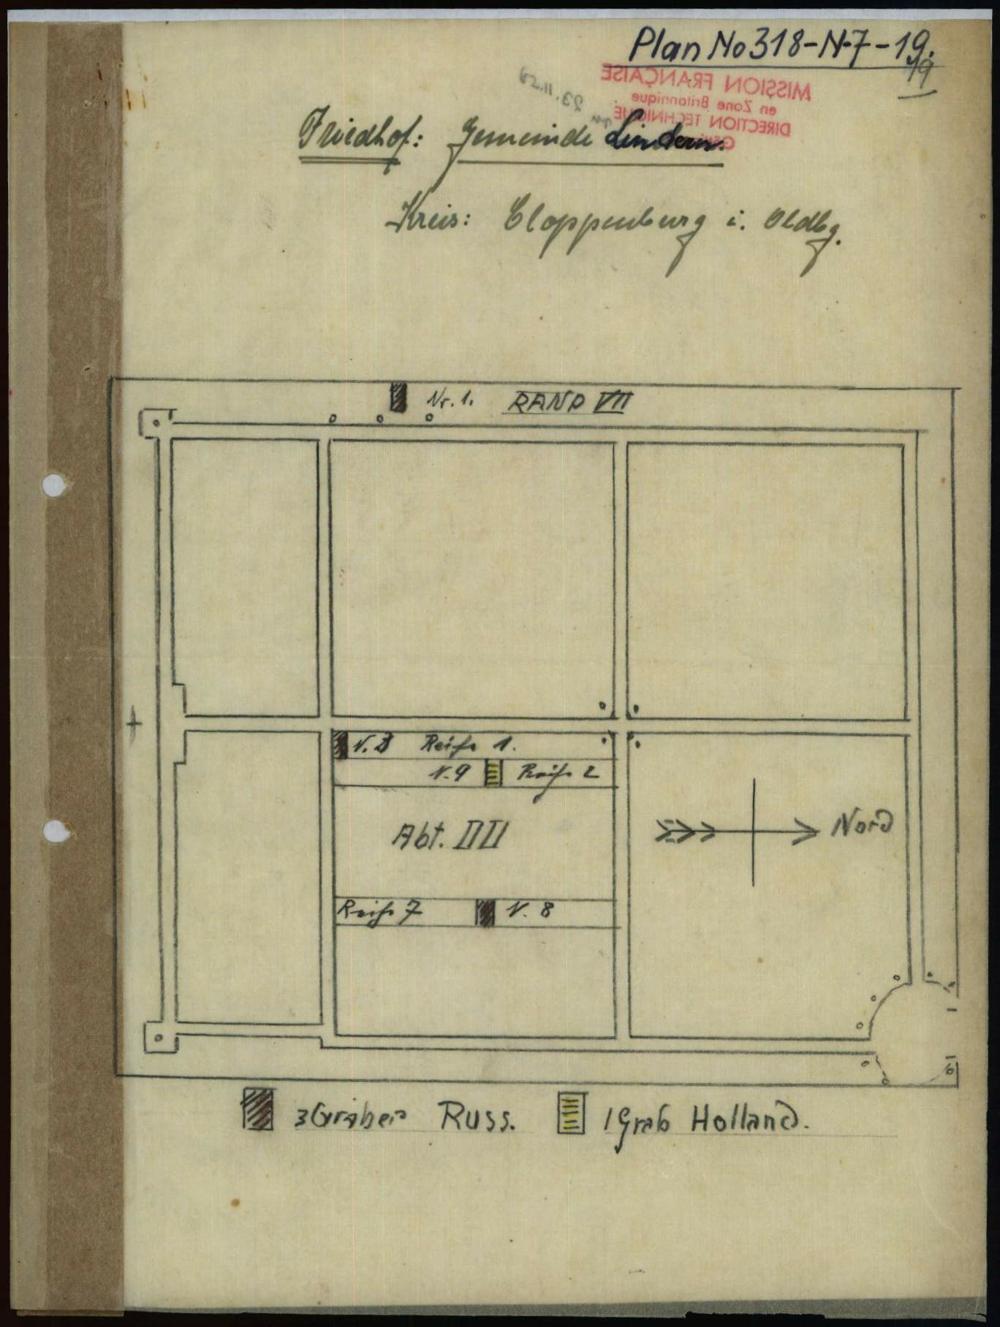 Plan No 318-N-7-19.
19
MISSION FRANÇAISE
en Zone Britannique
DIRECTION TECHNIQUE
23.11.59
Friedhof: Gemeinde Lindern.
Kreis: Cloppenburg i. Oldbg.
Nr. 1. RAND VII
Reihe 1.
N. 9 Reihe 2
Abt. III
Nord
Reihe 7 N. 8
3 Gräber Russ. 1 Grab Holland.